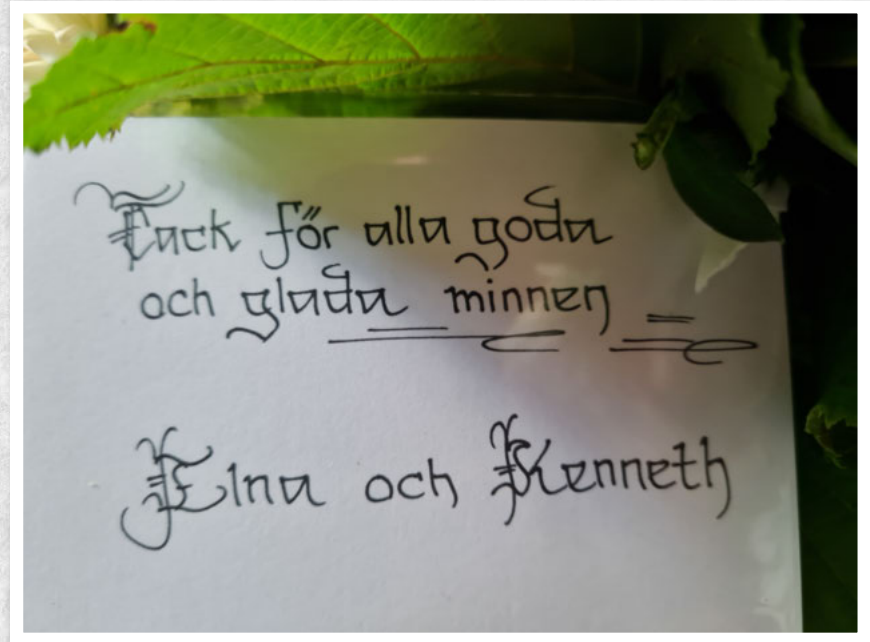 Tack för alla goda
och glada minnen
Elna och Kenneth